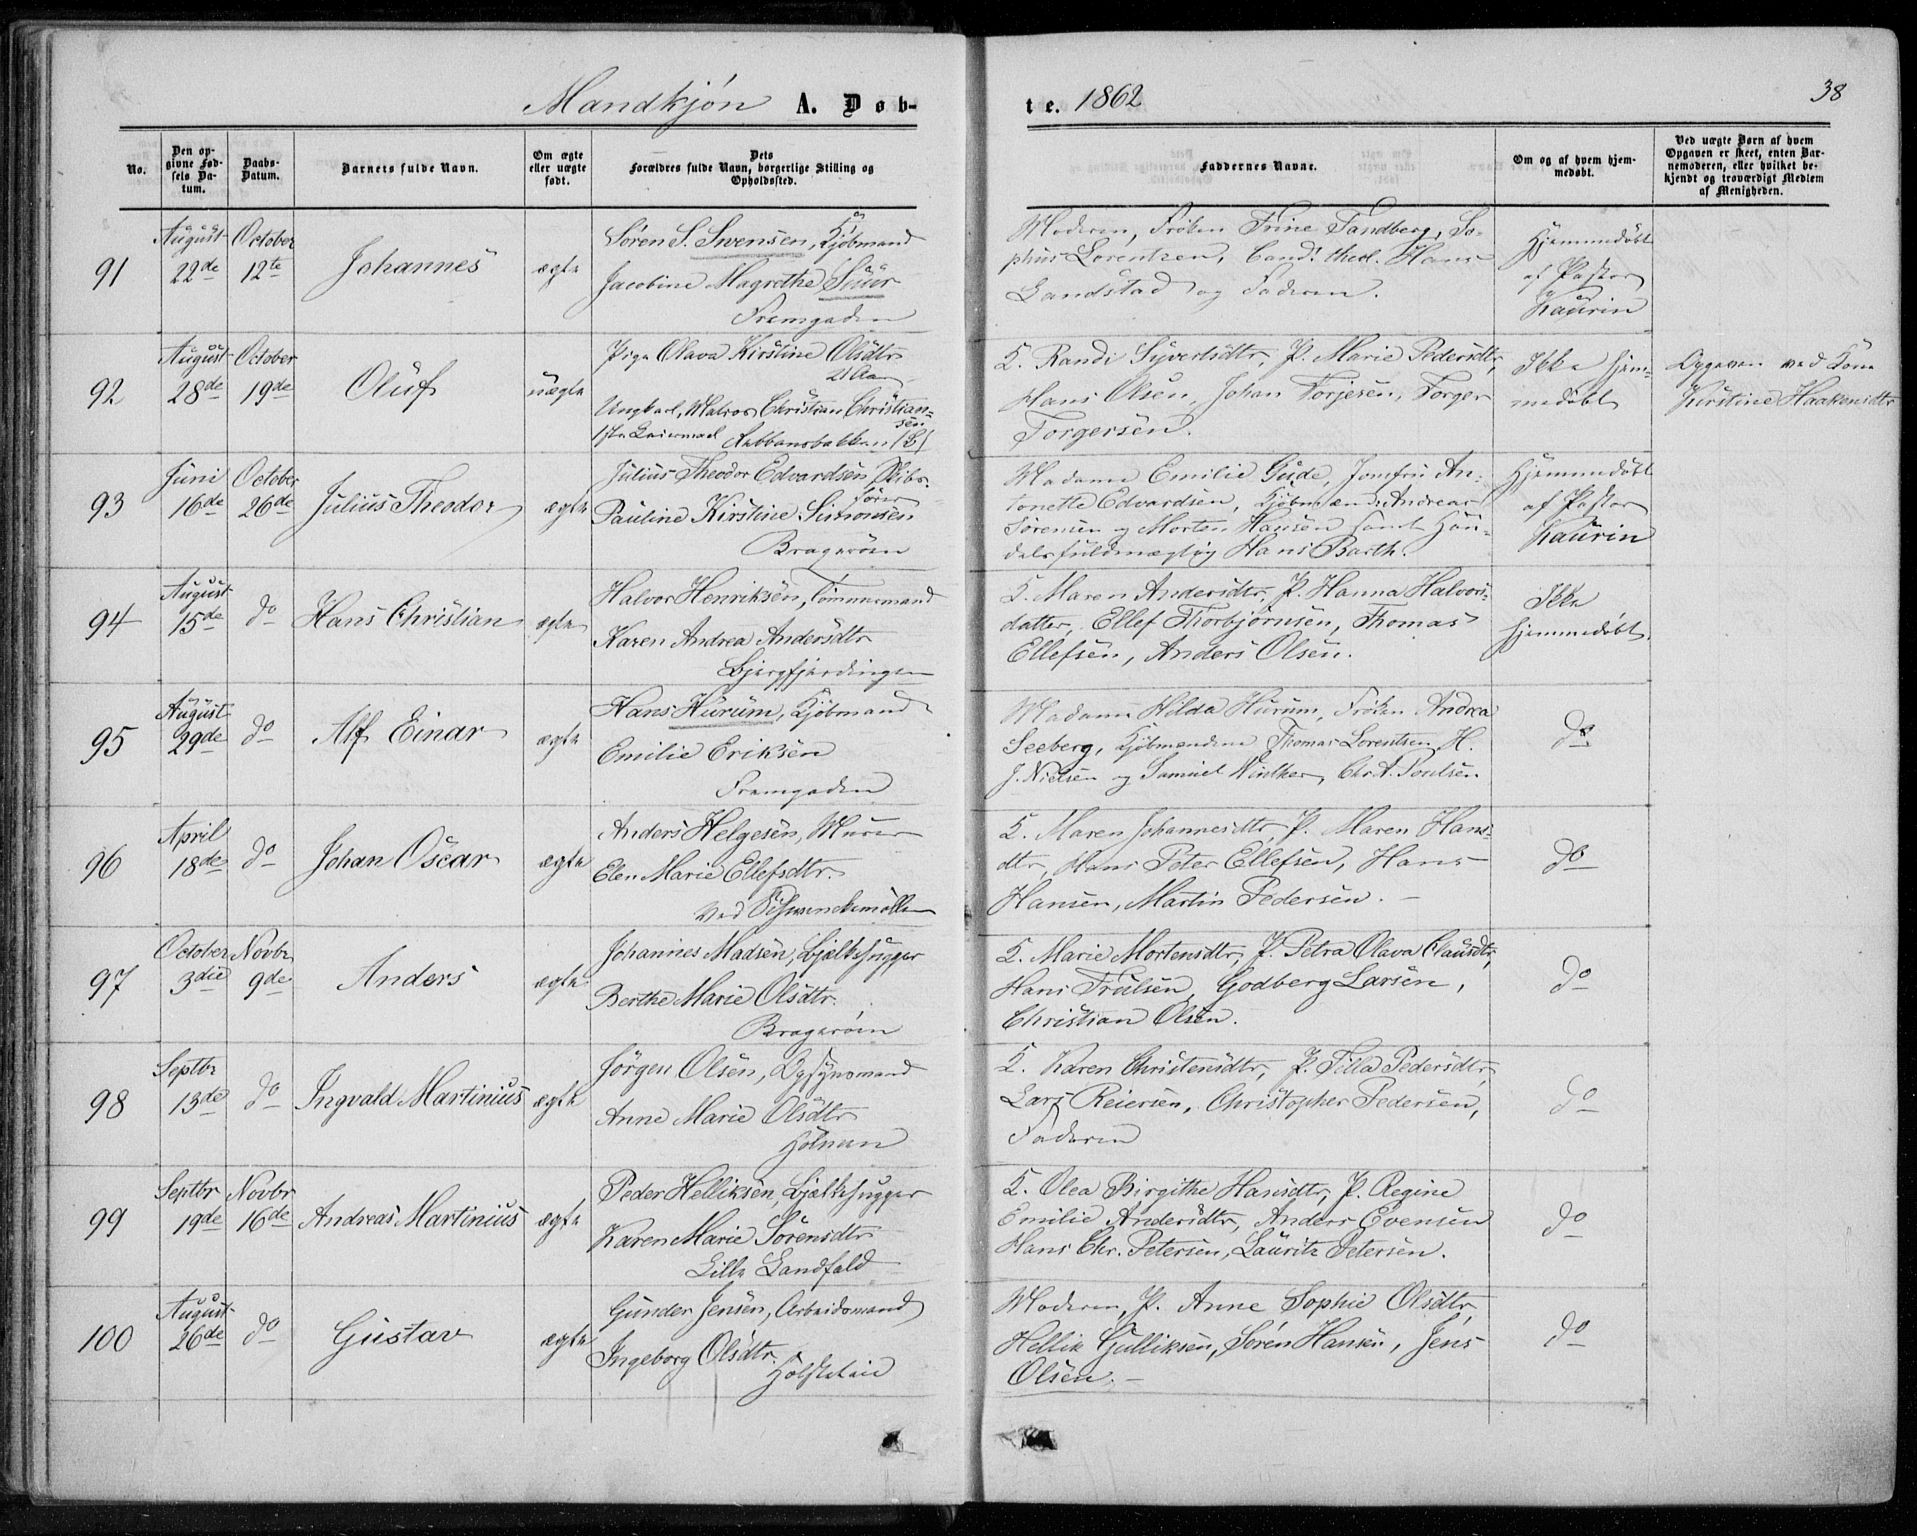 Mandkjøn A. Døb-
te. 1862
38
No.
Den op-
givne Fød-
sels Da-
tum.
Daabs-
Datum.
Barnets fulde Navn.
Om ægte
eller uægte
født.
Dets
Forældres fulde Navn, borgerlige Stilling og
Opholdssted.
Faddernes Navne.
Om og af hvem hjem-
medøbt.
Ved uægte Børn af hvem
Opgaven er skeet, enten Bar-
nemoderen, eller hvilket be-
kjendt og troværdigt Medlem
af Menigheden.
91
August
22de
October
12te
Johannes
ægte
Søren S. Svensen, Kjøbmand
Jacobine Magrethe
Fremgaden
Moderen, Frøken Trine Sandberg, So-
phus Lorentzen, Cand. theol. Hans
Landstad og Faderen.
Hjemmedøbt
af Pastor
Kaurin
92
August
28de
October
19de
Oluf
uægte
Pige Olava Kirstine Olsdtr
21 Aar
Ungkarl, Matros Christian Christian-
sen
1ste Leiermaal
K. Randi Syvertsdtr, P. Marie Pedersdtr,
Hans Olsen, Johan Torjesen, Torger
Torgersen.
Ikke hjem-
medøbt
Opgaven ved Kone
Kirstine Haakensdtr
93
Juni
16de
October
26de
Julius Theodor
ægte
Julius Theodor Edvardsen Skibs-
fører
Pauline Kirstine Simonsen
Bragerøen
Madame Emilie Gude, Jomfru An-
tonette Edvardsen, Kjøbmænd Andreas
Sørensen og Morten Hansen samt Han-
delsfuldmægtig Hans Barth.
Hjemmedøbt
af Pastor
Kaurin
94
August
15de
do
Hans Christian
ægte
Halvor Henriksen, Tømmermand
Karen Andrea Andersdtr
Bjergfjerdingen
K. Maren Andersdtr, P. Hanna Halvors-
datter, Ellef Thorbjørnsen, Thomas
Ellefsen, Anders Olsen.
Ikke
hjemmedøbt.
95
August
29de
do
Alf Einar
ægte
Hans Hurum, Kjøbmand
Emilie Eriksen
Fremgaden
Madame Hilda Hurum, Frøken Andrea
Seeberg, Kjøbmændene Thomas Lorentsen, H.
J. Nielsen og Samuel Winther, Chr. A. Poulsen.
do
96
April
18de
do
Johan Oscar
ægte
Anders Helgesen, Murer
Elen Marie Ellefsdtr.
Ved Schwenckemøllen
K. Maren Johannesdtr, P. Maren Hans-
dtr, Hans Peter Ellefsen, Hans
Hansen, Martin Pedersen.
do
97
October
3die
Novbr
9de
Anders
ægte
Johannes Madsen, Bjælkehugger
Berthe Marie Olsdtr.
Bragerøen
K. Marie Mortensdtr, P. Petra Olava Clausdtr,
Hans Trulsen, Godberg Larsen,
Christian Olsen.
do
98
Septbr
13de
do
Ingvald Martinius
ægte
Jørgen Olsen, Opsynsmand
Anne Marie Olsdtr
Holmen
K. Karen Christensdtr, P. Tilla Pedersdtr,
Lars Reiersen, Christopher Pedersen,
Faderen
do
99
Septbr
19de
Novbr
16de
Andreas Martinius
ægte
Peder Helliksen, Bjælkehugger
Karen Marie Sørensdtr
Lille Landfald
K. Olea Birgithe Hansdtr, P. Regine
Emilie Andersdtr, Anders Evensen
Hans Chr. Petersen, Lauritz Petersen.
do
100
August
26de
do
Gustav
ægte
Gunder Jensen, Arbeidsmand
Ingeborg Olsdtr.
Moderen, P. Anne Sophie Olsdtr,
Hellik Gulliksen, Søren Hansen, Jens
Olsen.
do